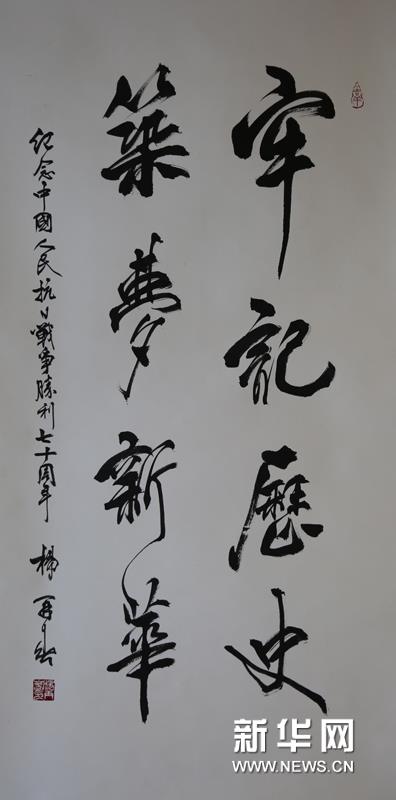 牢記歷史
築夢新華
紀念中國人民抗日戰爭勝利七十周年 楊再春
新华网
WWW.NEWS.CN